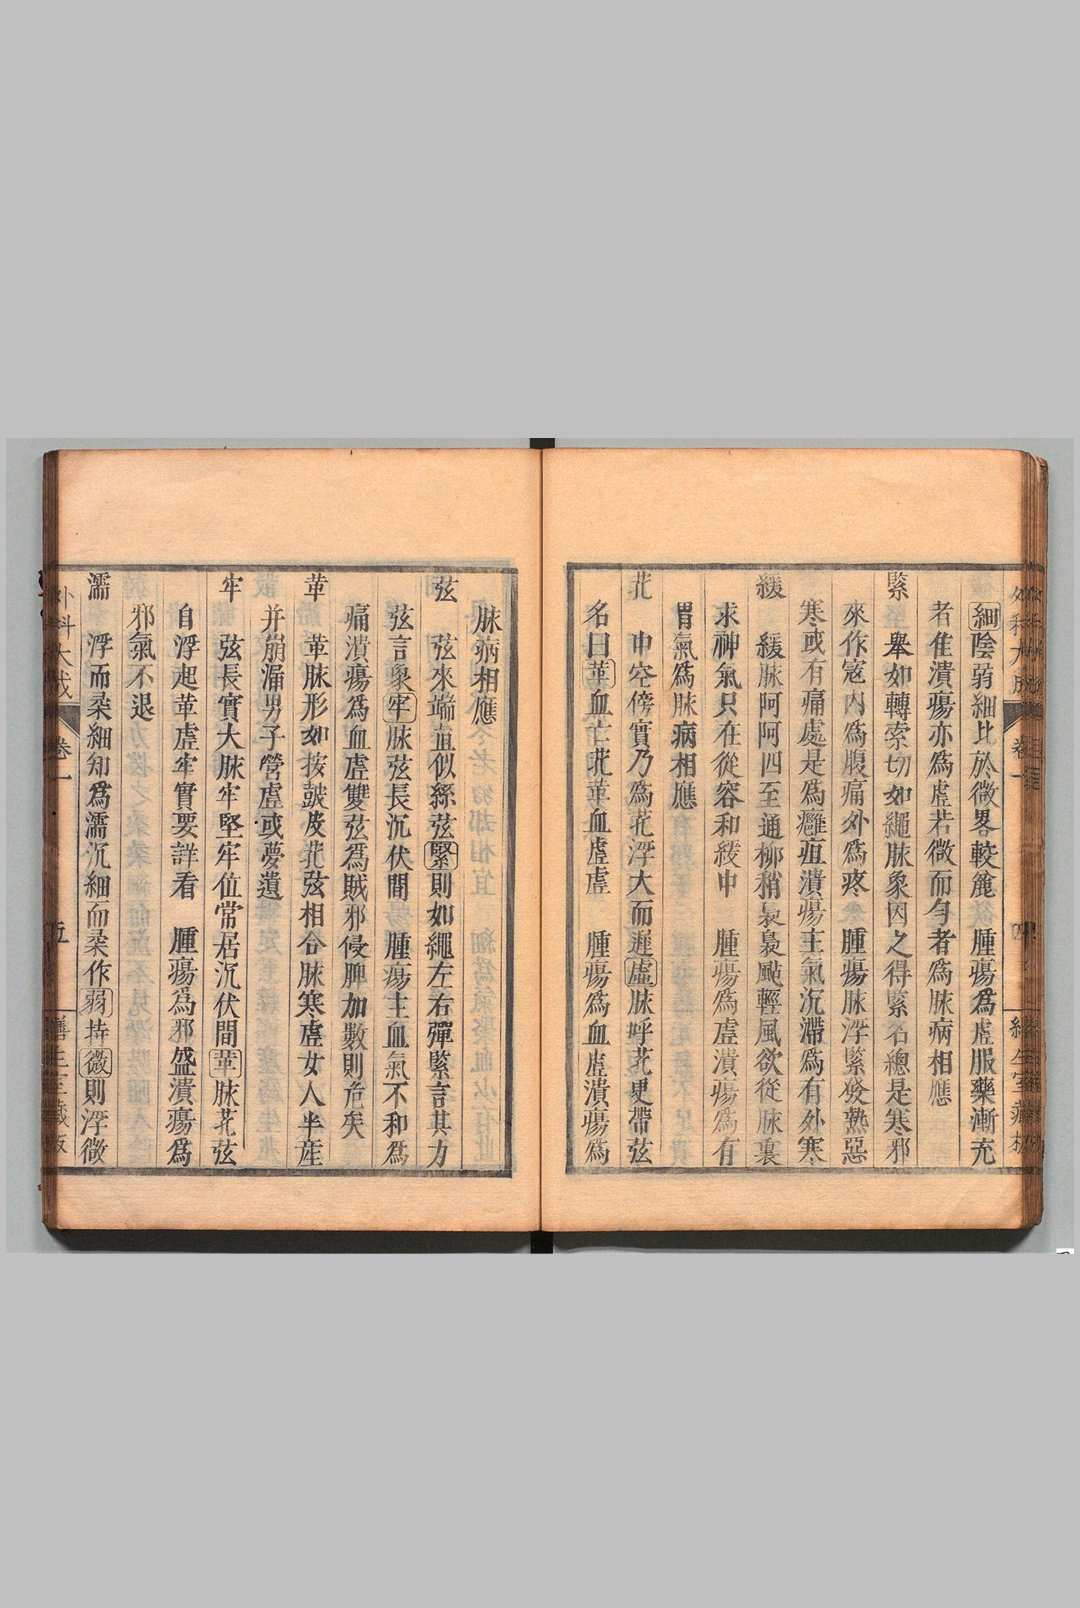 細陰弱細比於微畧較麄　腫瘍爲虛服藥漸充
者佳潰瘍亦爲虛若微而勻者爲脉病相應
緊　舉如轉索切如繩脉象因之得緊名總是寒邪
來作寇內爲腹痛外爲疼　腫瘍脉浮緊發熱惡
寒或有痛處是爲癰疽潰瘍主氣沉滯爲有外寒
緩　緩脉阿阿四至通柳稍裊裊颭輕風欲從脉裏
求神氣只在從容和緩中　腫瘍爲虛潰瘍爲有
胃氣爲脉病相應
芤　中空傍實乃爲芤浮大而遲虛脉呼芤更帶弦
名曰革血亡芤革血虛虛　腫瘍爲血虛潰瘍爲
脉病相應
弦　弦來端直似絲弦緊則如繩左右彈緊言其力
弦言象牢脉弦長沉伏間　腫瘍主血氣不和爲
痛潰瘍爲血虛雙弦爲賊邪侵脾加數則危矣
革　革脉形如按皷皮芤弦相合脉寒虛女人半産
并崩漏男子營虛或夢遺
牢　弦長實大脉牢堅牢位常居沉伏間革脉芤弦
自浮起革虛牢實要詳看　腫瘍爲邪盛潰瘍爲
邪氣不退
濡　浮而柔細知爲濡沉細而柔作弱持微則浮微
外科大成　卷一　五　善生堂藏板